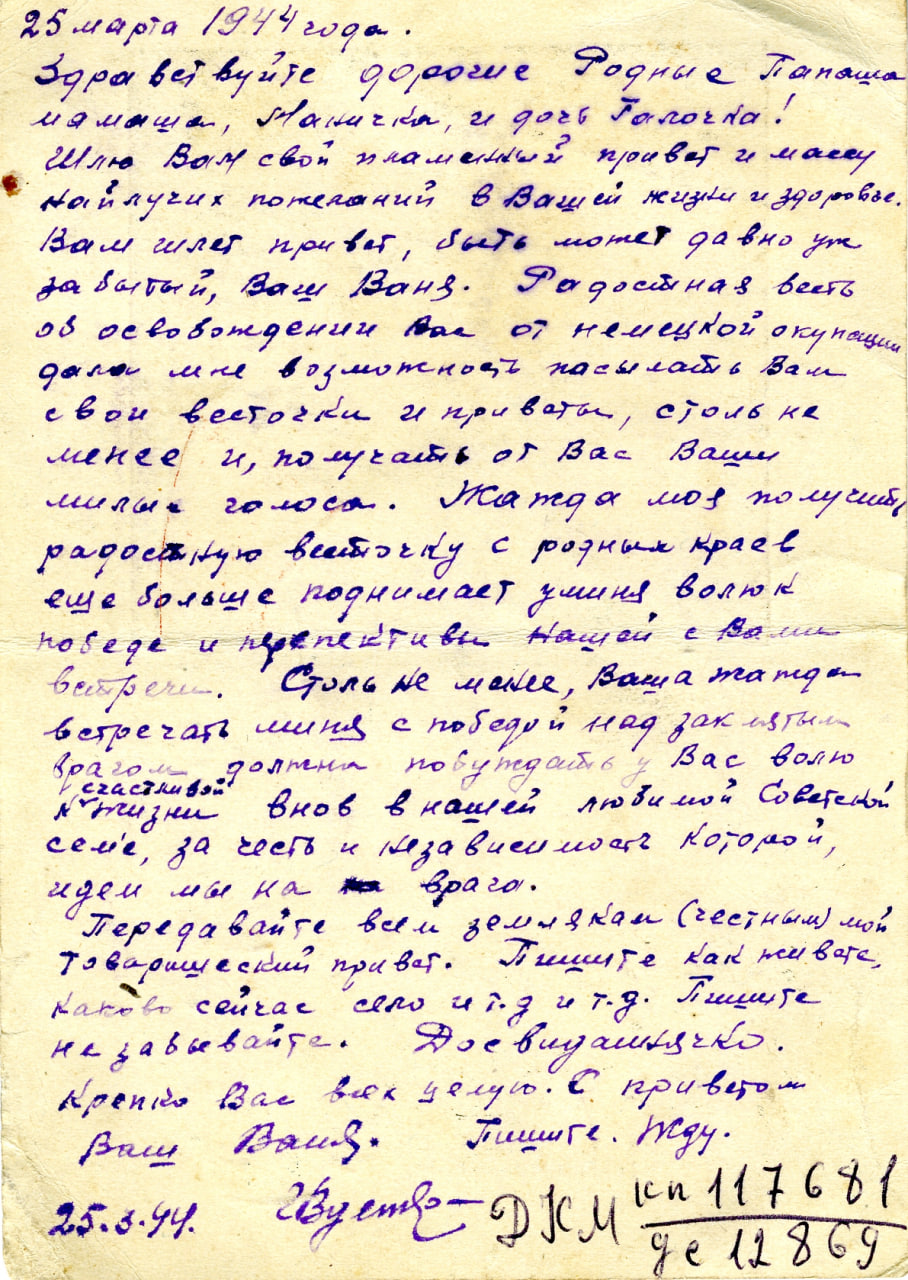 25 марта 1944 года.
Здравствуйте дорогие Родные Папаша
мамаша, Маничка, и дочь Галочка!
Шлю Вам свой пламеный привет и массу
найлучих пожеланий в Вашей жизни и здоровье.
Вам шлет привет, быть может давно уж
забытый, Ваш Ваня. Радостная весть
об освобождении Вас от немецкой окупации
дала мне возможность пасылать Вам
свои весточки и приветы, столь не
менее и, получать от Вас Ваши
милые голоса. Жажда моя получить
радостную весточку с родных краев
еще больше поднимает уминя волю к
победе и перепективы нашей с Вами
встречи. Столь не мение, Ваша жажда
встречать миня с победой над заклятым
врагом должна побуждать у Вас волю
счастливой
к жизни внов в нашей любимой Советской
сем'е, за честь и независимость которой,
идем мы на врага.
Передавайте всем землякам (честным) мой
товарищеский привет. Пишите как живете,
каково сейчас село и т.д и т.д. Пишите
не забывайте. Досвиданячко.
Крепко Вас всех целую. С приветом
Ваш Ваня. Пишите. Жду.
25.3.44.
ДКМ кп 117681
дс 12869